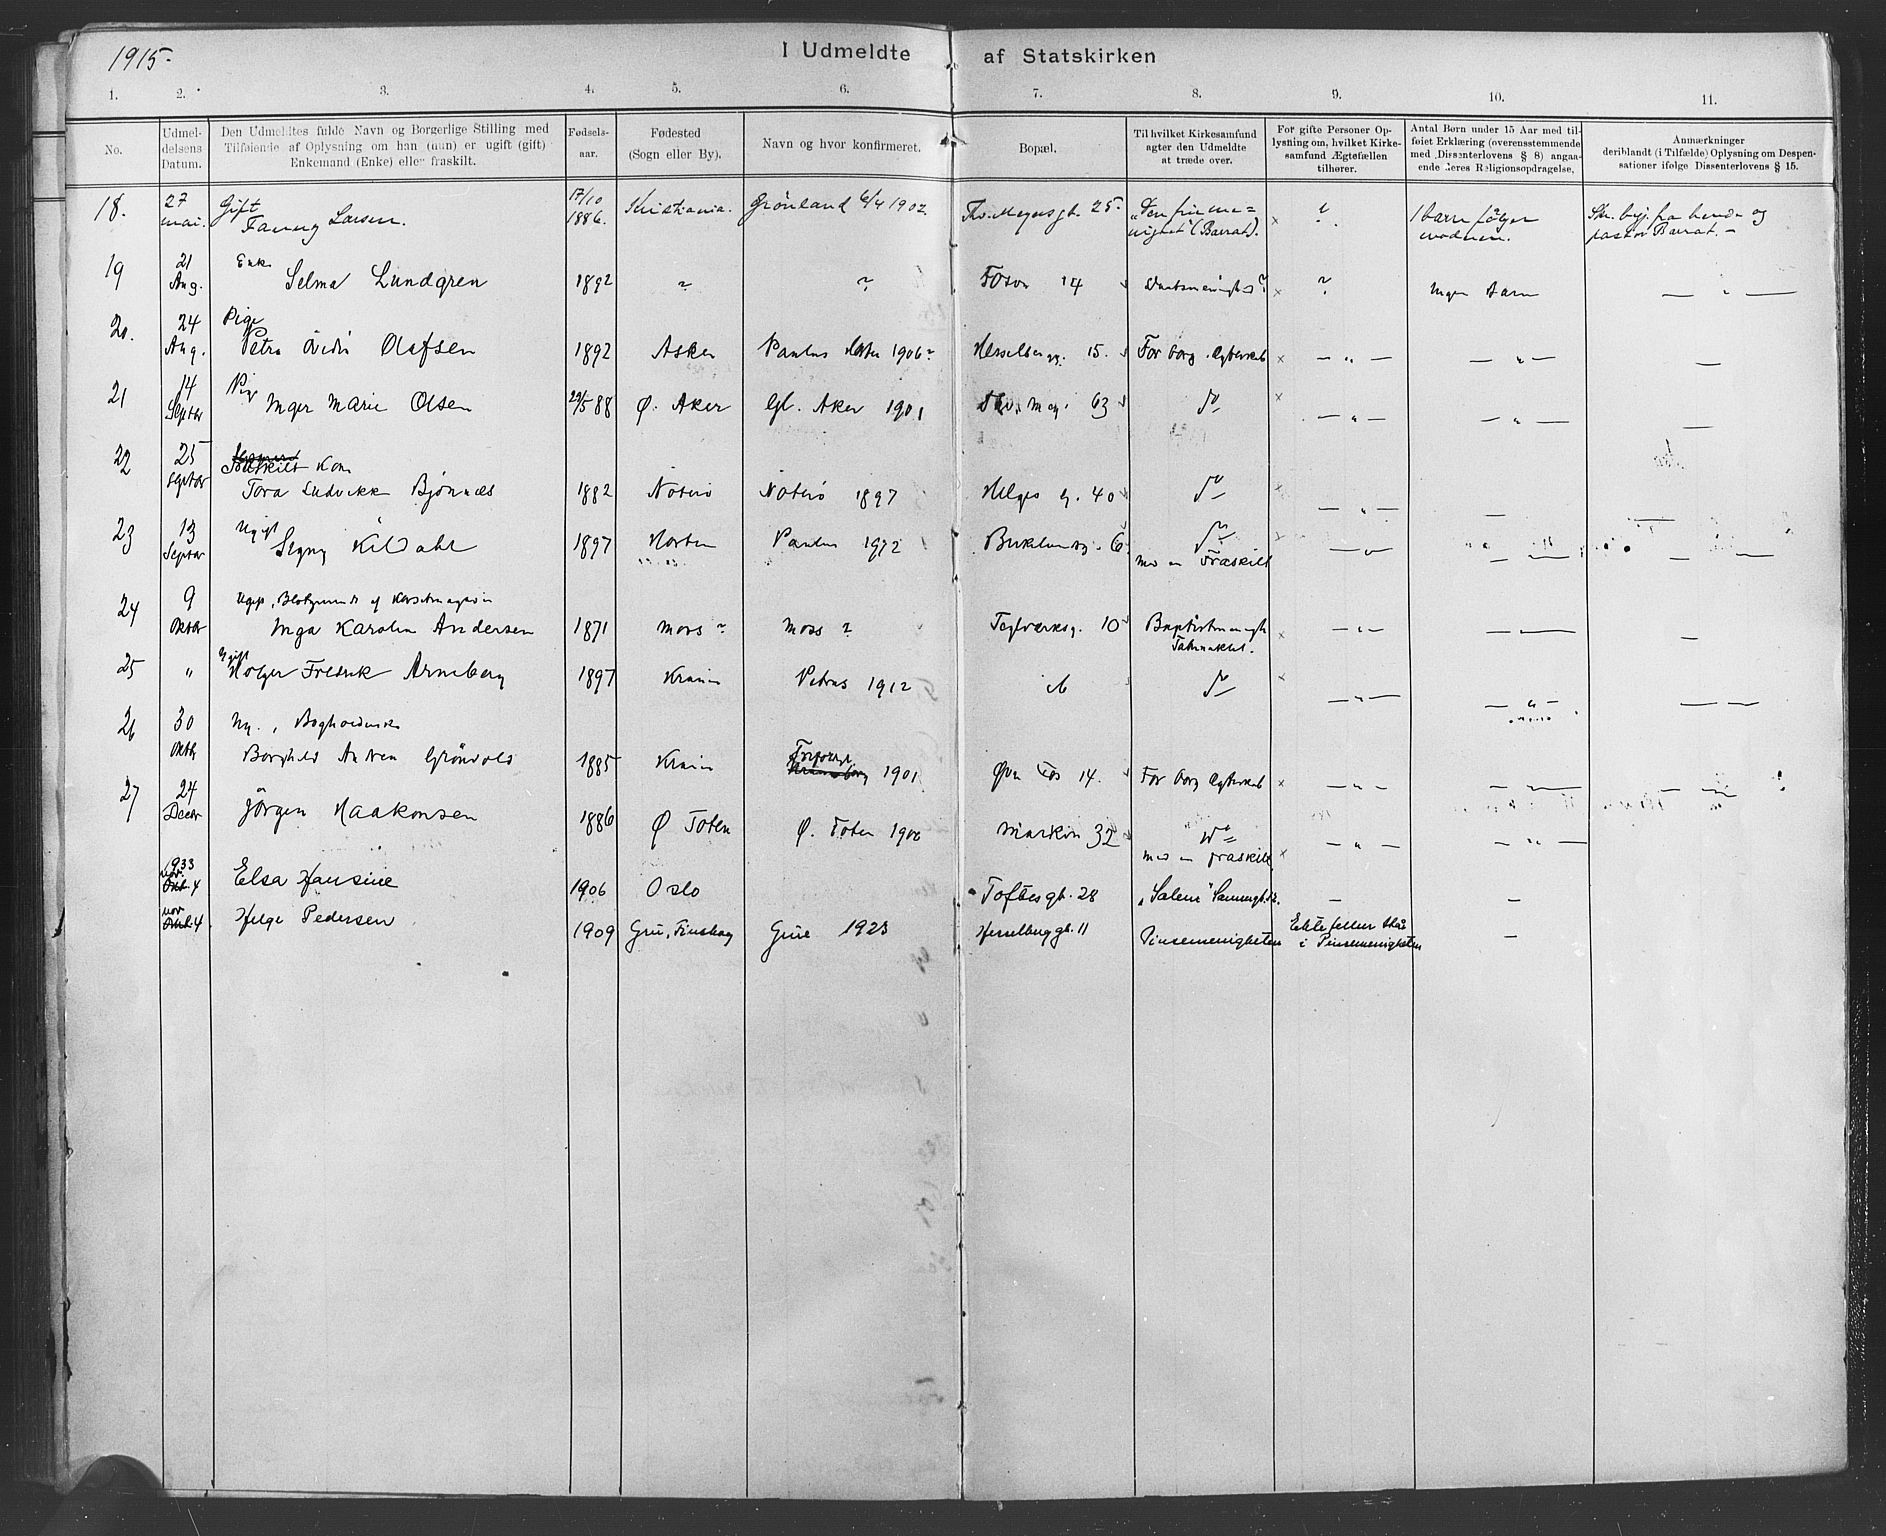 1915.
I Udmeldte af Statskirken
1. 2. 3. 4. 5. 6. 7. 8. 9. 10. 11.
No.
Udmel-
delsens
Datum.
Den Udmeldtes fulde Navn og Borgerlige Stilling med
Tilføiende af Oplysning om han (hun) er ugift (gift)
Enkemand (Enke) eller fraskilt.
Fødsels-
aar.
Fødested
(Sogn eller By).
Navn og hvor konfirmeret.
Bopæl.
Til hvilket Kirkesamfund
agter den Udmeldte
at træde over.
For gifte Personer Op-
lysning om, hvilket Kirke-
samfund Ægtefællen
tilhører.
Antal Børn under 15 Aar med til-
føiet Erklæring (overensstemmende
med Dissenterlovens § 8) angaa-
ende deres Religionsopdragelse.
Anmærkninger
deriblandt (i Tilfælde) Oplysning om Despen-
sationer ifølge Dissenterlovens § 15.
18. 27 mai. Gift
Fanny Larsen. 17/10 1886. Kristiania. Grønland 6/4 1902. Thv. Meyersgt. 25. "Den frie me=
nighet" (Barrat). ? 1 barn følger
moderen. Skr. bej. fra hende og
pastor Barrat. —
19 21 Aug. Enke
Selma Lundgren 1892 ~ ~ Fosv 14 ? ~ Ingen barn — " —
20. 24 Aug. Pige
Petra Olafsen 1892 Asker Paulus 1906 Hesselbergg. 15. For borg. Egteskab — " — — " — —
21 14 Septbr Pige
Inger Marie Olsen 29/5 88 Ø. Aker Gl. Aker 1901 Thv. Mey. 63 do — " — — " — —
22 25 Septbr Fraskilt Kone
Tora Ludvikke Bjønnæs 1882 Nøterø Nøterø 1897 Helges g. 40 do — " — — —
23 13 Septbr Ugift
Signy Kildahl 1897 Horten Paulus 1912 6 do
med en Fraskilt — " — — — — —
24 9 Oktbr Ugift,
Inga Karolin Andersen 1871 Moss ? Moss ? Teglverksg. 10 Baptistmenigh
Tabernaklet. — " — — — —
25 " Ugift
Holger Fredrik Arneberg 1897 Krania Petrus 1912 do — " — — " — — —
26 30 Oktb Ug., Bogholderske
Borghild Andrea Grönvold 1885 Krania 1901 Øvre Fos 14. For borg Egteskab — " — — — — —
27 24 Decbr Jörgen Haakonsen 1886 Ø Toten Ø. Toten 1900 Markvn 32 do
med en fraskilt — " — — " —
1933
nov.
Okt. 4 Elsa Hansine 1906 Oslo Toftesgt. 28 "Salem" — —
nov
Okt. 4 Helge Pedersen 1909 Grue, Finskog Grue 1923 Hesselberggt. 11 Pinsemenigheten Ektefellen står
i Pinsemenigheten —